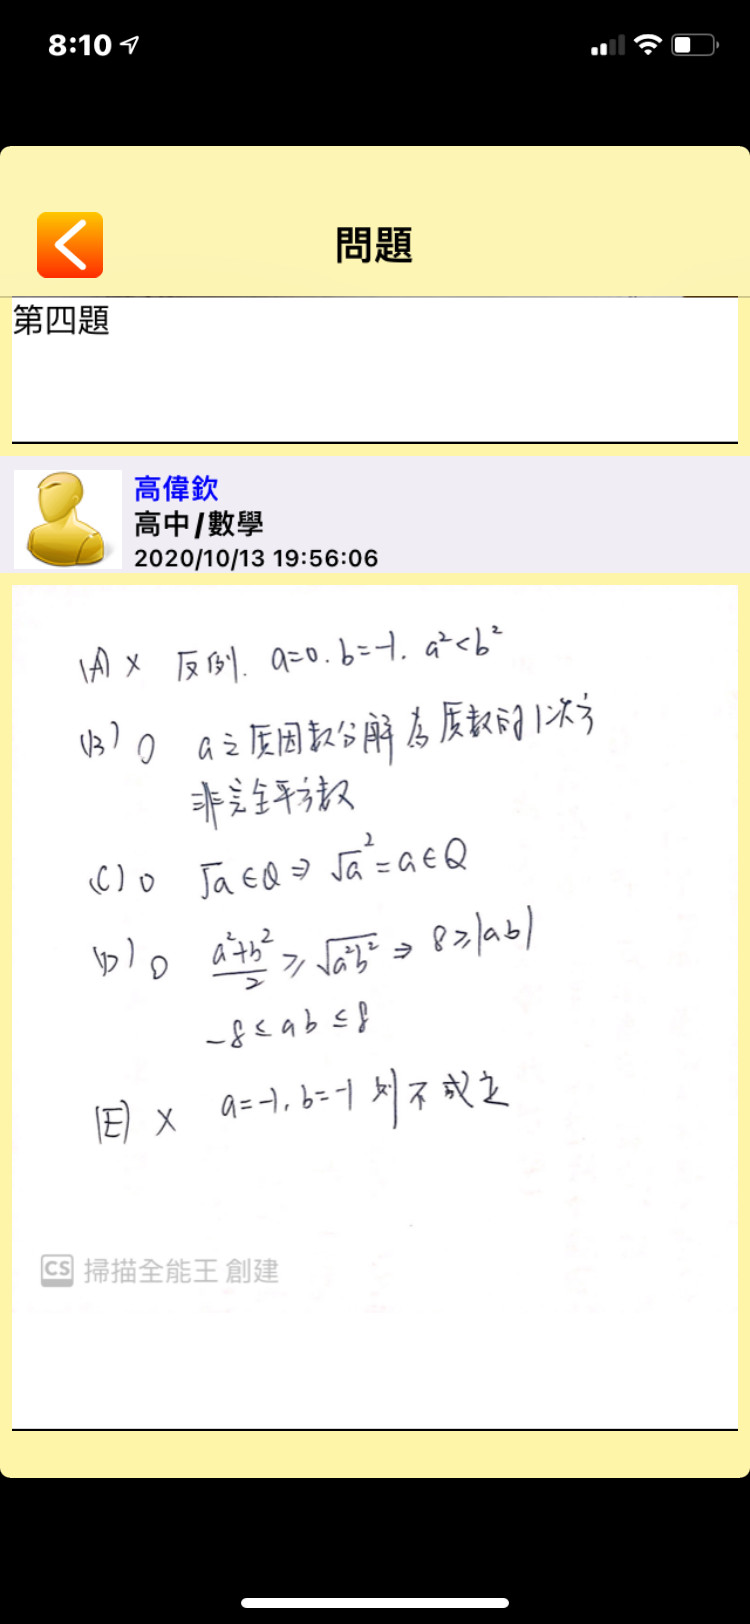 8:10
問題
第四題
高偉欽
高中/數學
2020/10/13 19:56:06
(A) × 反例. a=0. b=-1. a²<b²
(B) ○ a之质因數分解為质數的1次方
非完全平方數
(C) ○ √a∈Q⇒√a²=a∈Q
(D) ○ (a²+b²)/2 ≥ √(a²b²) ⇒ 8≥|ab|
-8≤ab≤8
(E) × a=-1, b=-1 则不成立
CS 掃描全能王 創建